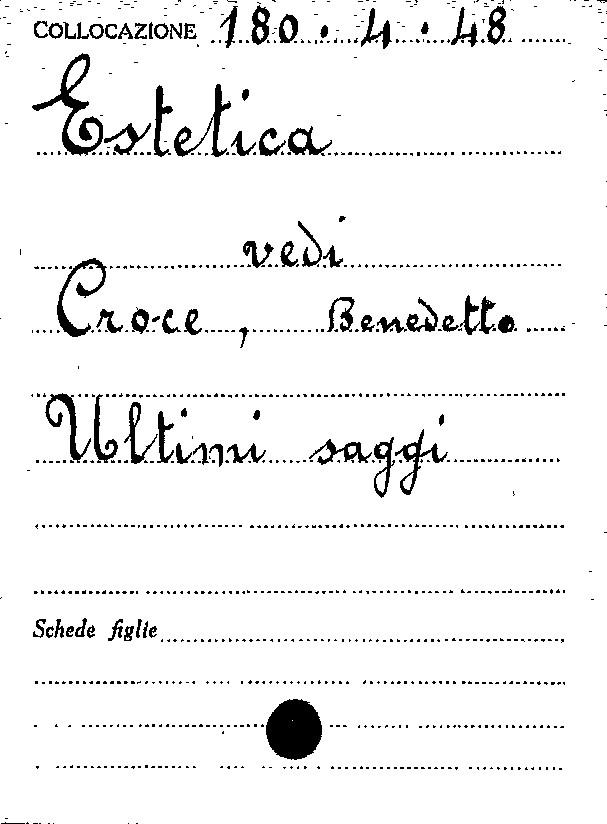 COLLOCAZIONE 180.4.48
Estetica
vedi
Croce, Benedetto
Ultimi saggi
Schede figlie